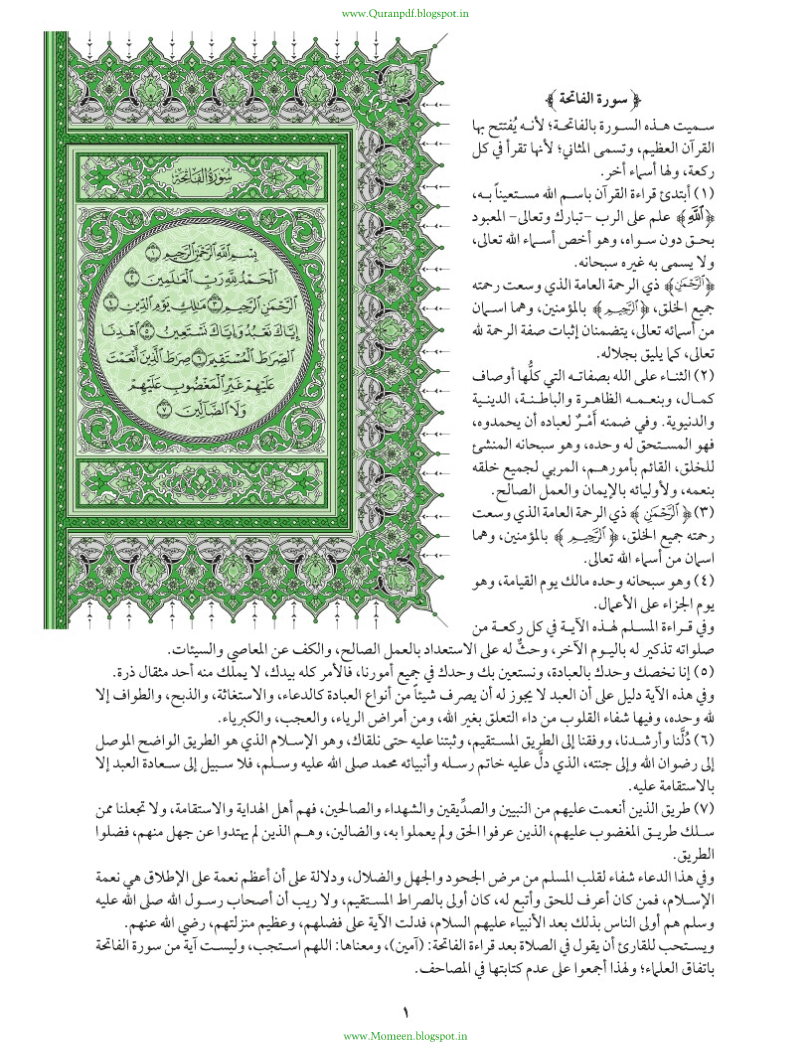 www.Quranpdf.blogspot.in
﴿ سورة الفاتحة ﴾
سميت هذه السورة بالفاتحة؛ لأنه يُفتتح بها
القرآن العظيم، وتسمى المثاني؛ لأنها تقرأ في كل
ركعة، ولها أسماء أخر.
(١) أبتدئ قراءة القرآن باسم الله مستعيناً به،
﴿ٱللَّهِ﴾ علم على الرب -تبارك وتعالى- المعبود
بحق دون سواه، وهو أخص أسماء الله تعالى،
ولا يسمى به غيره سبحانه.
﴿ٱلرَّحۡمَٰنِ﴾ ذي الرحمة العامة الذي وسعت رحمته
جميع الخلق، ﴿ٱلرَّحِيمِ﴾ بالمؤمنين، وهما اسمان
من أسمائه تعالى، يتضمنان إثبات صفة الرحمة لله
تعالى، كما يليق بجلاله.
(٢) الثناء على الله بصفاته التي كلُّها أوصاف
كمال، وبنعمه الظاهرة والباطنة، الدينية
والدنيوية. وفي ضمنه أَمْرٌ لعباده أن يحمدوه،
فهو المستحق له وحده، وهو سبحانه المنشئ
للخلق، القائم بأمورهم، المربي لجميع خلقه
بنعمه، ولأوليائه بالإيمان والعمل الصالح.
(٣) ﴿ ٱلرَّحۡمَٰنِ ﴾ ذي الرحمة العامة الذي وسعت
رحمته جميع الخلق، ﴿ ٱلرَّحِيمِ ﴾ بالمؤمنين، وهما
اسمان من أسماء الله تعالى.
(٤) وهو سبحانه وحده مالك يوم القيامة، وهو
يوم الجزاء على الأعمال.
وفي قراءة المسلم لهذه الآية في كل ركعة من
صلواته تذكير له باليوم الآخر، وحثٌّ له على الاستعداد بالعمل الصالح، والكف عن المعاصي والسيئات.
(٥) إنا نخصك وحدك بالعبادة، ونستعين بك وحدك في جميع أمورنا، فالأمر كله بيدك، لا يملك منه أحد مثقال ذرة.
وفي هذه الآية دليل على أن العبد لا يجوز له أن يصرف شيئاً من أنواع العبادة كالدعاء، والاستغاثة، والذبح، والطواف إلا
لله وحده، وفيها شفاء القلوب من داء التعلق بغير الله، ومن أمراض الرياء، والعجب، والكبرياء.
(٦) دُلَّنا وأرشدنا، ووفقنا إلى الطريق المستقيم، وثبتنا عليه حتى نلقاك، وهو الإسلام الذي هو الطريق الواضح الموصل
إلى رضوان الله وإلى جنته، الذي دلَّ عليه خاتم رسله وأنبيائه محمد صلى الله عليه وسلم، فلا سبيل إلى سعادة العبد إلا
بالاستقامة عليه.
(٧) طريق الذين أنعمت عليهم من النبيين والصدِّيقين والشهداء والصالحين، فهم أهل الهداية والاستقامة، ولا تجعلنا ممن
سلك طريق المغضوب عليهم، الذين عرفوا الحق ولم يعملوا به، والضالين، وهم الذين لم يهتدوا عن جهل منهم، فضلوا
الطريق.
وفي هذا الدعاء شفاء لقلب المسلم من مرض الجحود والجهل والضلال، ودلالة على أن أعظم نعمة على الإطلاق هي نعمة
الإسلام، فمن كان أعرف للحق وأتبع له، كان أولى بالصراط المستقيم، ولا ريب أن أصحاب رسول الله صلى الله عليه
وسلم هم أولى الناس بذلك بعد الأنبياء عليهم السلام، فدلت الآية على فضلهم، وعظيم منزلتهم، رضي الله عنهم.
ويستحب للقارئ أن يقول في الصلاة بعد قراءة الفاتحة: (آمين)، ومعناها: اللهم استجب، وليست آية من سورة الفاتحة
باتفاق العلماء؛ ولهذا أجمعوا على عدم كتابتها في المصاحف.
سُورَةُ الفَاتِحَةِ
بِسۡمِ ٱللَّهِ ٱلرَّحۡمَٰنِ ٱلرَّحِيمِ ١
ٱلۡحَمۡدُ لِلَّهِ رَبِّ ٱلۡعَٰلَمِينَ ٢
ٱلرَّحۡمَٰنِ ٱلرَّحِيمِ ٣ مَٰلِكِ يَوۡمِ ٱلدِّينِ ٤
إِيَّاكَ نَعۡبُدُ وَإِيَّاكَ نَسۡتَعِينُ ٥ ٱهۡدِنَا
ٱلصِّرَٰطَ ٱلۡمُسۡتَقِيمَ ٦ صِرَٰطَ ٱلَّذِينَ أَنۡعَمۡتَ
عَلَيۡهِمۡ غَيۡرِ ٱلۡمَغۡضُوبِ عَلَيۡهِمۡ
وَلَا ٱلضَّآلِّينَ ٧
١
www.Momeen.blogspot.in